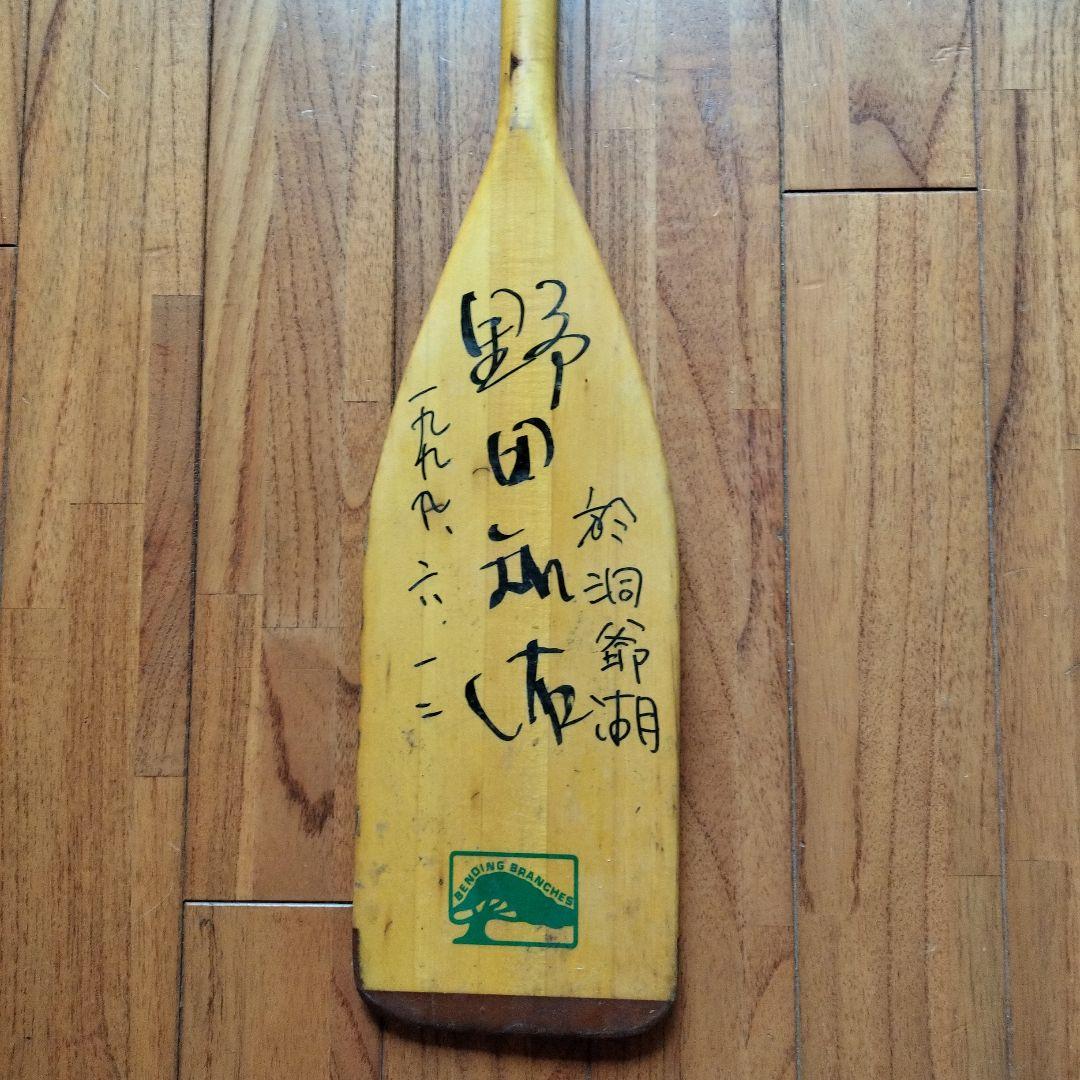 於洞爺湖
野田知佑
一九九九、六、一二
BENDING BRANCHES